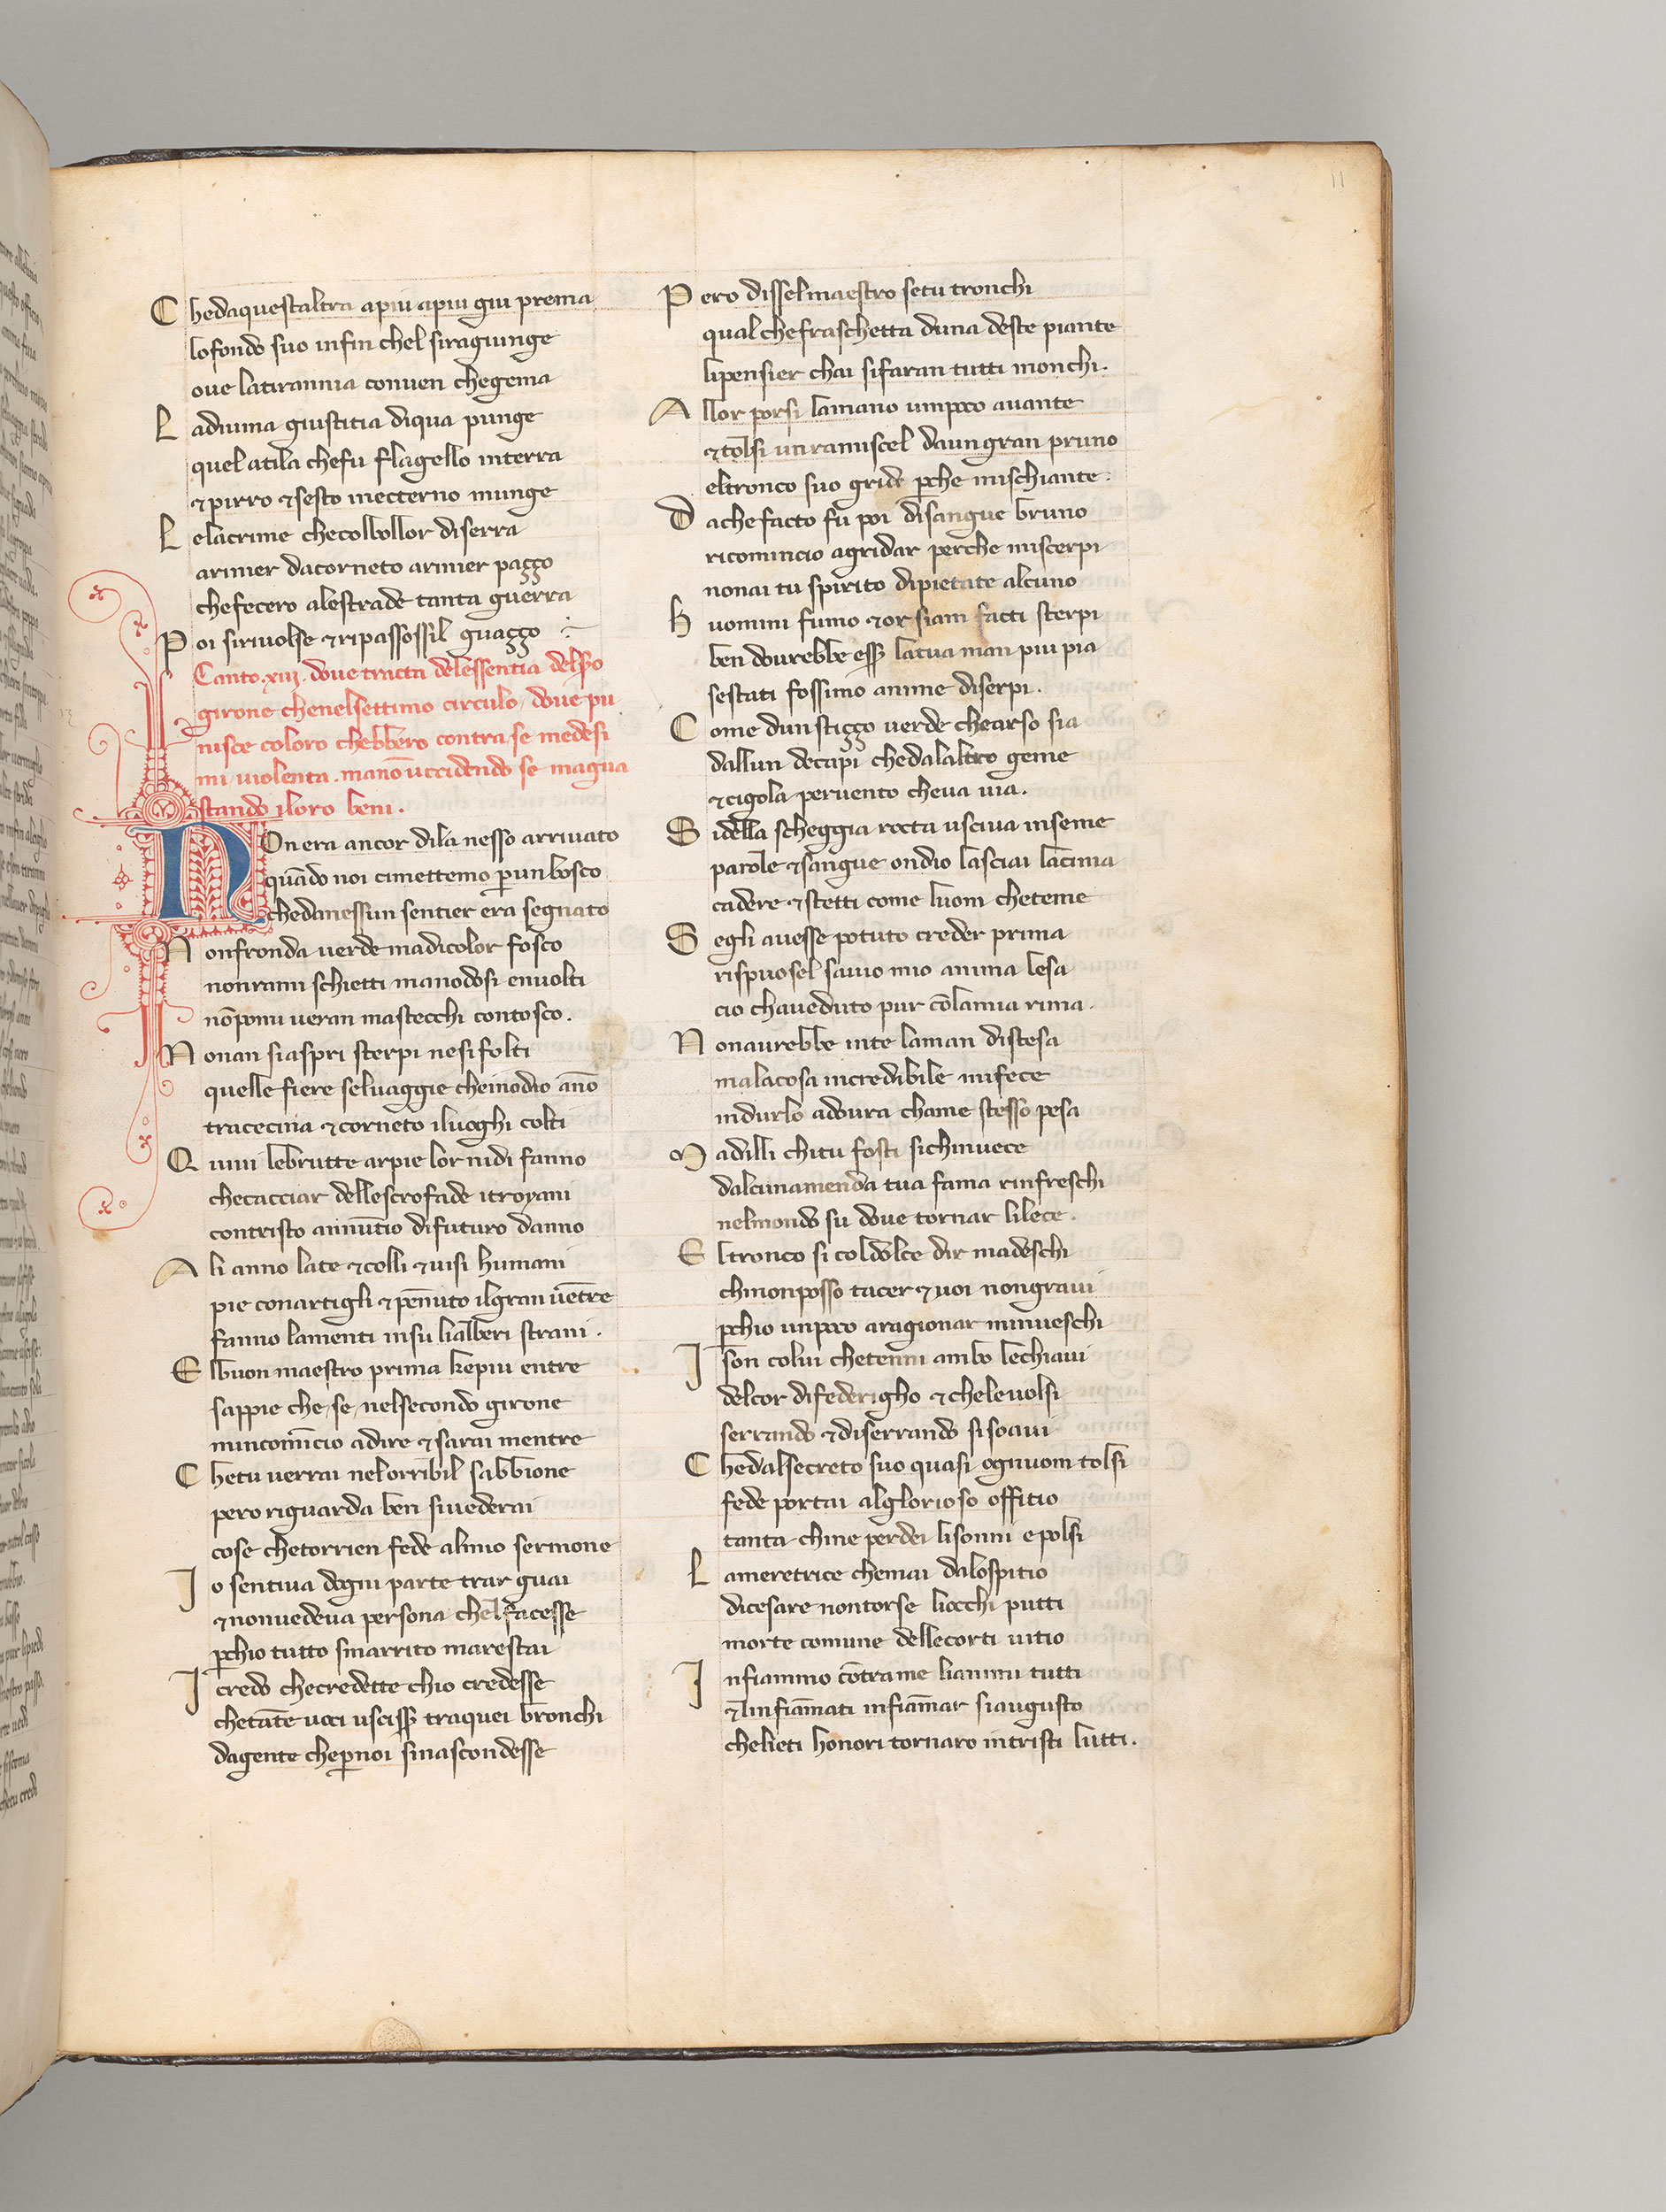 11
Chedaquestaltra apiu apiu giu prema
lofondo suo infin chel siragiunge
oue latirannia conuen chegema
Ladiuina giustitia diqua punge
quel atila chefu flagello interra
⁊ pirro ⁊ sesto inecterno munge
Lelacrime checolbollor diserra
arinier dacorneto arinier paççо
chefecero alestrade tanta guerra
Poi siriuolse ⁊ ripassossil guaçço
Canto .xiij. doue tracta delessentia del
girone chenelsettimo circulo, doue pu
nisce coloro chebbero contra se medesi
mi uiolenta . mano uccidendo se ma gua
stando iloro beni .
NOn era ancor dila nesso arriuato
quādo noi cimettemo ꝑunbosco
chedanessun sentier era segnato
Nonfronda uerde madicolor fosco
nonrami schietti manodosi enuolti
nōpomi ueran mastecchi contosco .
Nonan siaspri sterpi nesifolti
quelle fiere seluaggie cheinodio āno
tracecina ⁊ corneto iluoghi colti
Quiui lebrutte arpie lor nidi fanno
checacciar dellescrofade itroyani
contristo annūtio difuturo danno
Ali anno late ⁊ colli ⁊ uisi humani
pie conartigli ⁊ pēnuto ilgran uētre
fanno lamenti insu lialberi strani .
Elbuon maestro prima kepiu entre
sappie che se nelsecondo girone
mincomīcio adire ⁊ sarai mentre
Chetu uerrai nelorribil sabbione
pero riguarda ben siuederai
cose chetorrien fede almio sermone
Io sentiua dogni parte trar guai
⁊ nonuedeua persona chel facesse
ꝑchio tutto smarrito marestai
I credo checredette chio credesse
chetāte uoci usciss traquei bronchi
dagente cheꝑnoi sinascondesse
Pero disselmaestro setu tronchi
qual chefraschetta duna deste piante
lipensier chai sifaran tutti monchi .
Allor porsi lamano umpoco auante
⁊ tolsi unramiscel daungran pruno
eltronco suo grido ꝑche mischiante .
Dachefacto fu poi disangue bruno
ricomincio agridar perche miscerpi
nonai tu spirito dipietate alcuno
huomini fumo ⁊ or siam facti sterpi
ben dourebbe esse latua man piu pia
sestati fossimo anime diserpi .
Come dunstiçço uerde chearso sia
dallun decapi chedalaltro geme
⁊ cigola peruento cheua uia .
Sidella scheggia rocta usciua inseme
parole ⁊ sangue ondio lasciai lacima
cadere ⁊ stetti come luom cheteme
Segli auesse potuto creder prima
rispuosel sauio mio anima lesa
cio chaueduto pur cōlamia rima .
Nonaurebbe inte laman distesa
malacosa incredibile mifece
indurlo adoura chame stesso pesa
Madilli chitu fosti sichinuece
dalcunamenda tua fama rinfreschi
nelmondo su doue tornar lilece .
Eltronco si coldolce dir madeschi
chinonposso tacer ⁊ uoi nongraui
ꝑchio unpoco aragionar minueschi
I son colui chetenni ambo lechiaui
delcor difederigho ⁊ cheleuolsi
serrando ⁊ diserrando sisoaui
Chedalsecreto suo quasi ognuom tolsi
fede portai alglorioso offitio
tanta chine perdei lisonni epolsi
Lameretrice chemai dalospitio
dicesare nontorse liocchi putti
morte comune dellecorti uitio
Infiammo cōtrame lianimi tutti
⁊ linfiāmati infiāmar siaugusto
chelieti honori tornaro intristi lutti .